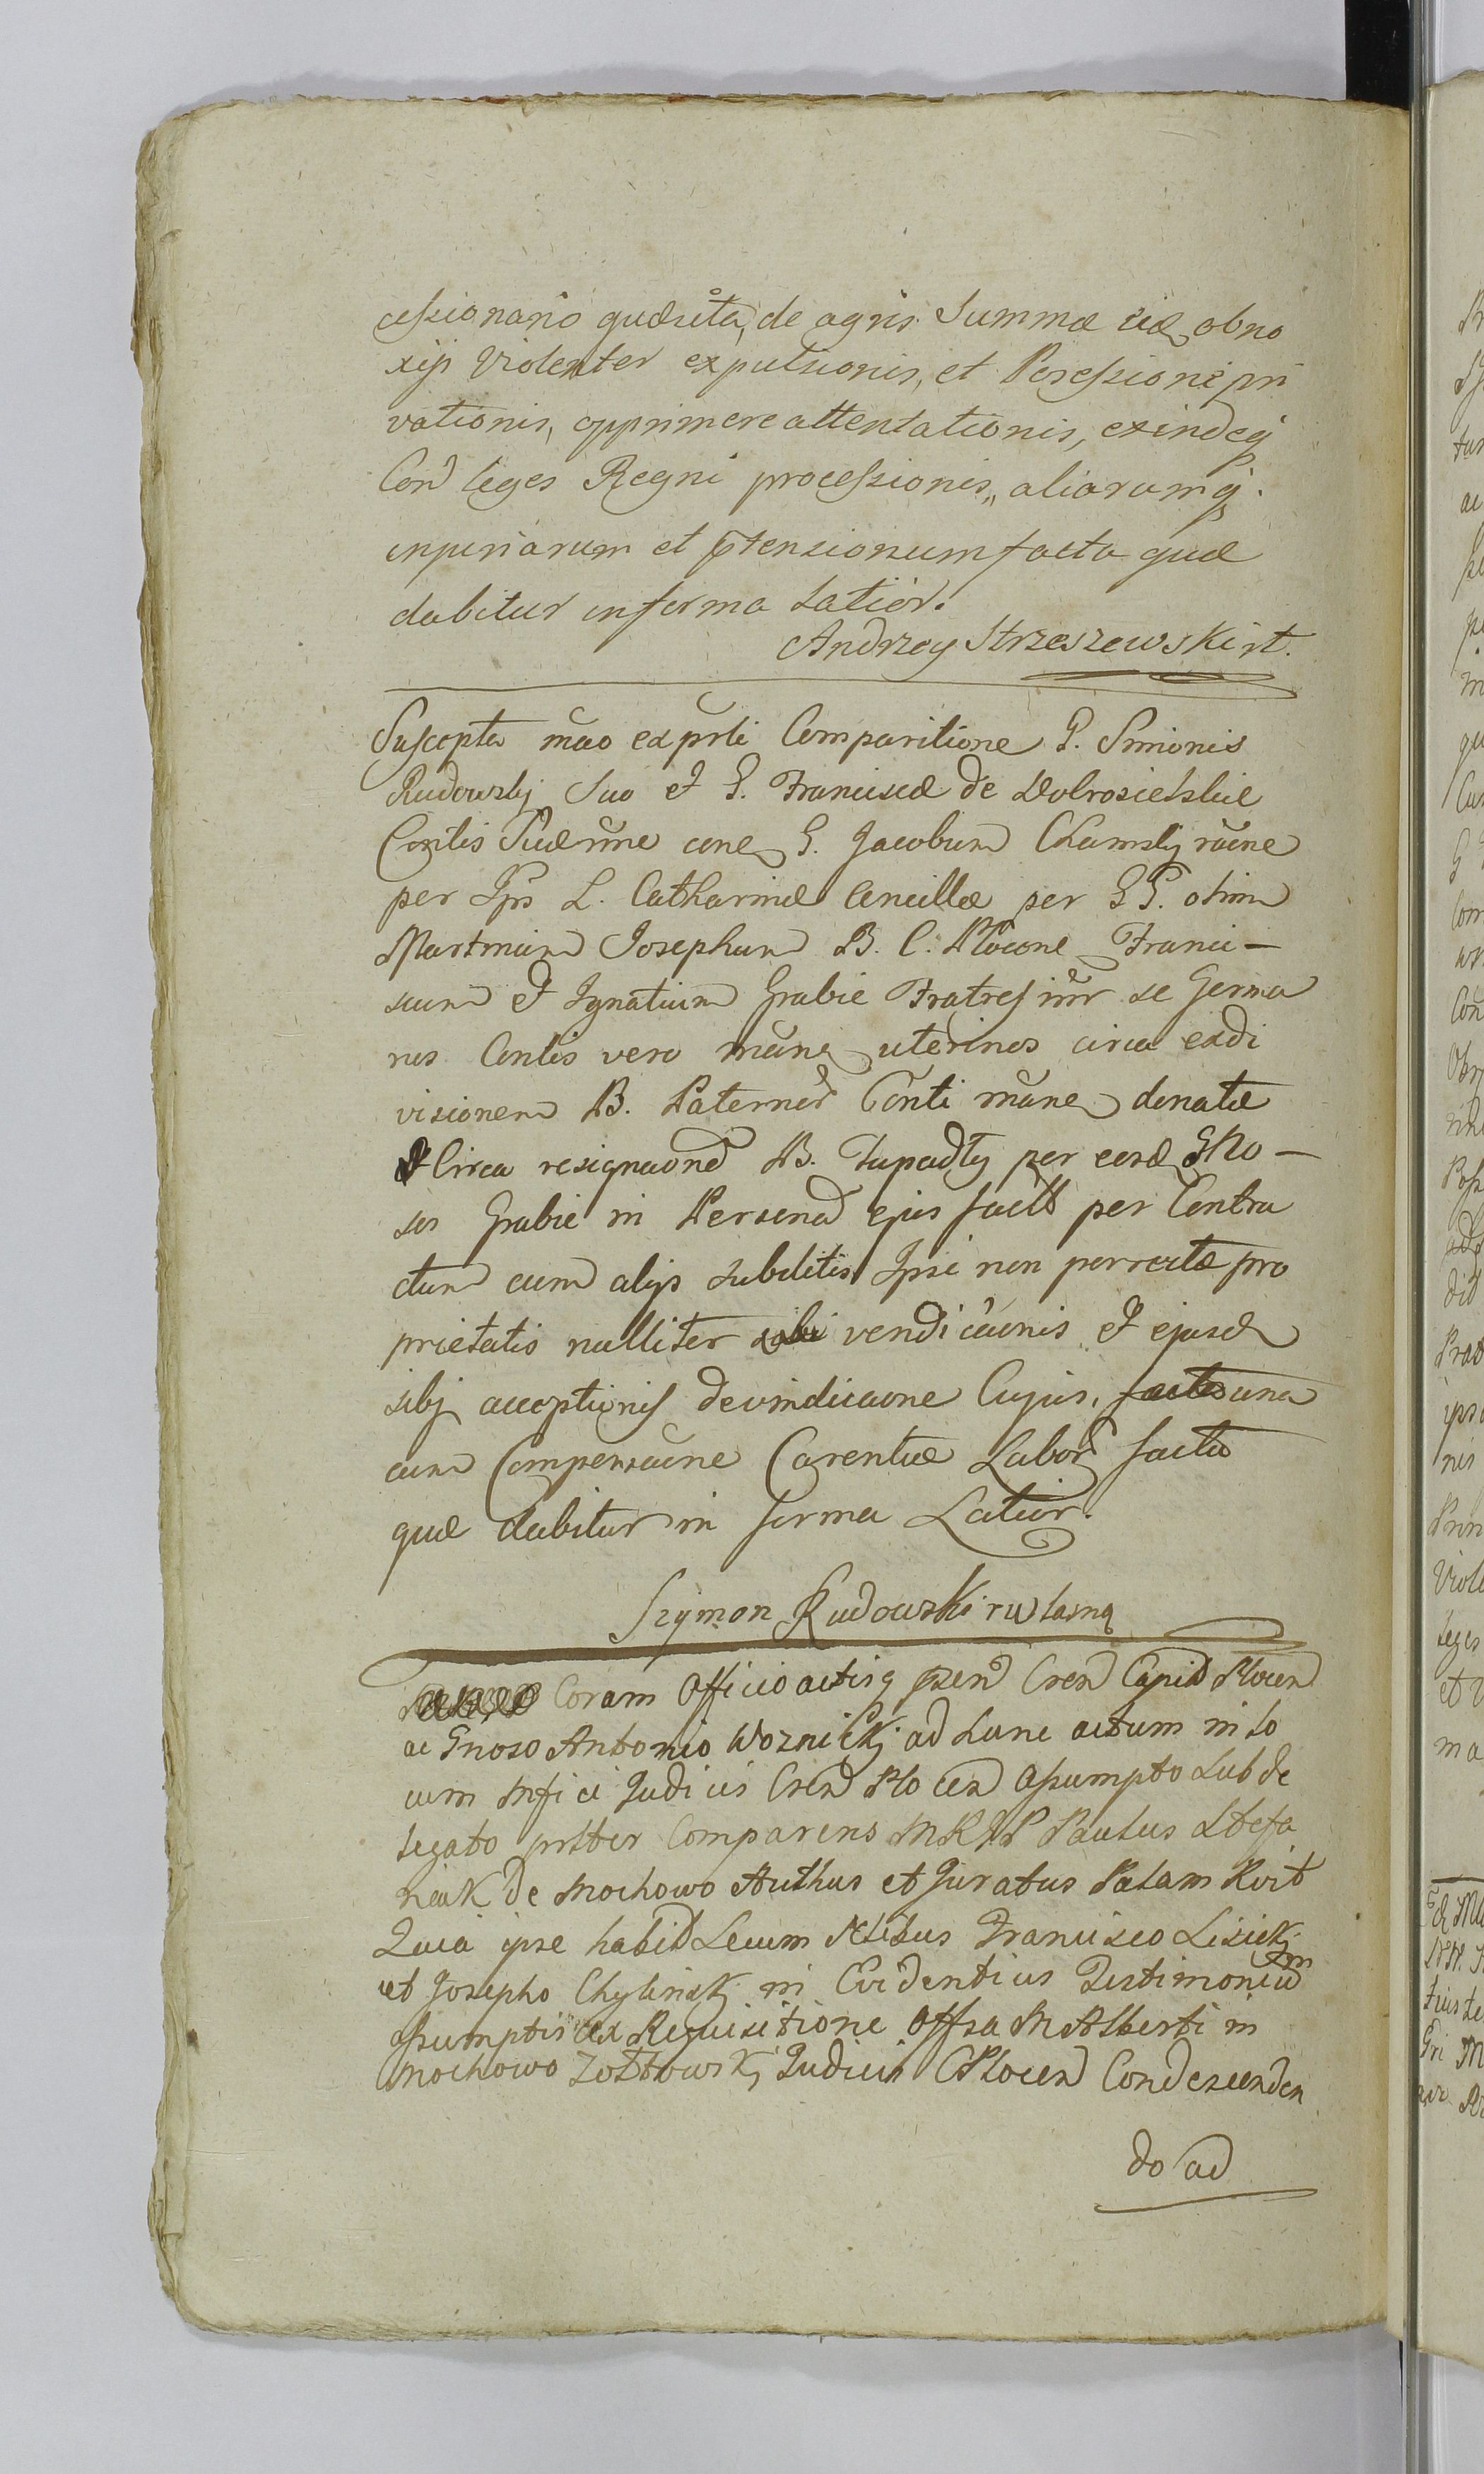 cessionario quæsita, de agris Summæ suæ obno
xijs Violenter expulsionis, et Possessione pri
vationis, opprimere attentationis, exindeq
Con leges Regni processionis, aliarumq.
injuriarum et prtensionum facta quæ
dabitur in forma Latior.
Andrzey Strzeszewski rt.
Suscepta mao ex prti Comparitione G. Simonis
Rudowsky Suo et G. Franciscæ de Dobrosielskie
Contlis Suæ nne cone G. Jacobum Chamsky rõne
per Ips L. Catharinæ Ancillæ per GG. olim
Martinum Josephum B. C. Plocone Franci-
scum et Ignatium Grabie Fratres inr se Germa
nos Contis vero mãne uterinos circa exdi
visionem B. Paternor Conti mãne donatæ
Circa resignaone B. Tupadly per eosd GNo-
sos Grabie in Persona ejus factt per Contra
ctum cum alijs subditis Ipsi non porrectæ pro
prietatis nulliter vendicaonis et ejusd
sibj acceptionis devindicaone Cujus, una
cum Compensaone Carentiæ Labor facta
quæ dabitur in forma Latior.
Szymon Rudowski rwłasną
Coram Officio actisq præn Cren Capid Plocen
ac Gnoso Antonio Woznicky ad hunc actum in lo
cum Mfici Judicis Cren Plocen Assumpto Subde
legato prltter Comparens MRJP Paulus Stefa
niak de Mochowo Authus et Juratus Palam Rvit
Quia ipse habit Secum Nlibus Francisco Lisicky
et Josepho Chylinsky in Evidentius Testimonium
assumptis ad Requisitione Offsa MAlberti in
Mochowo Zołtowsky Judicis Plocen Condescenden
do ad